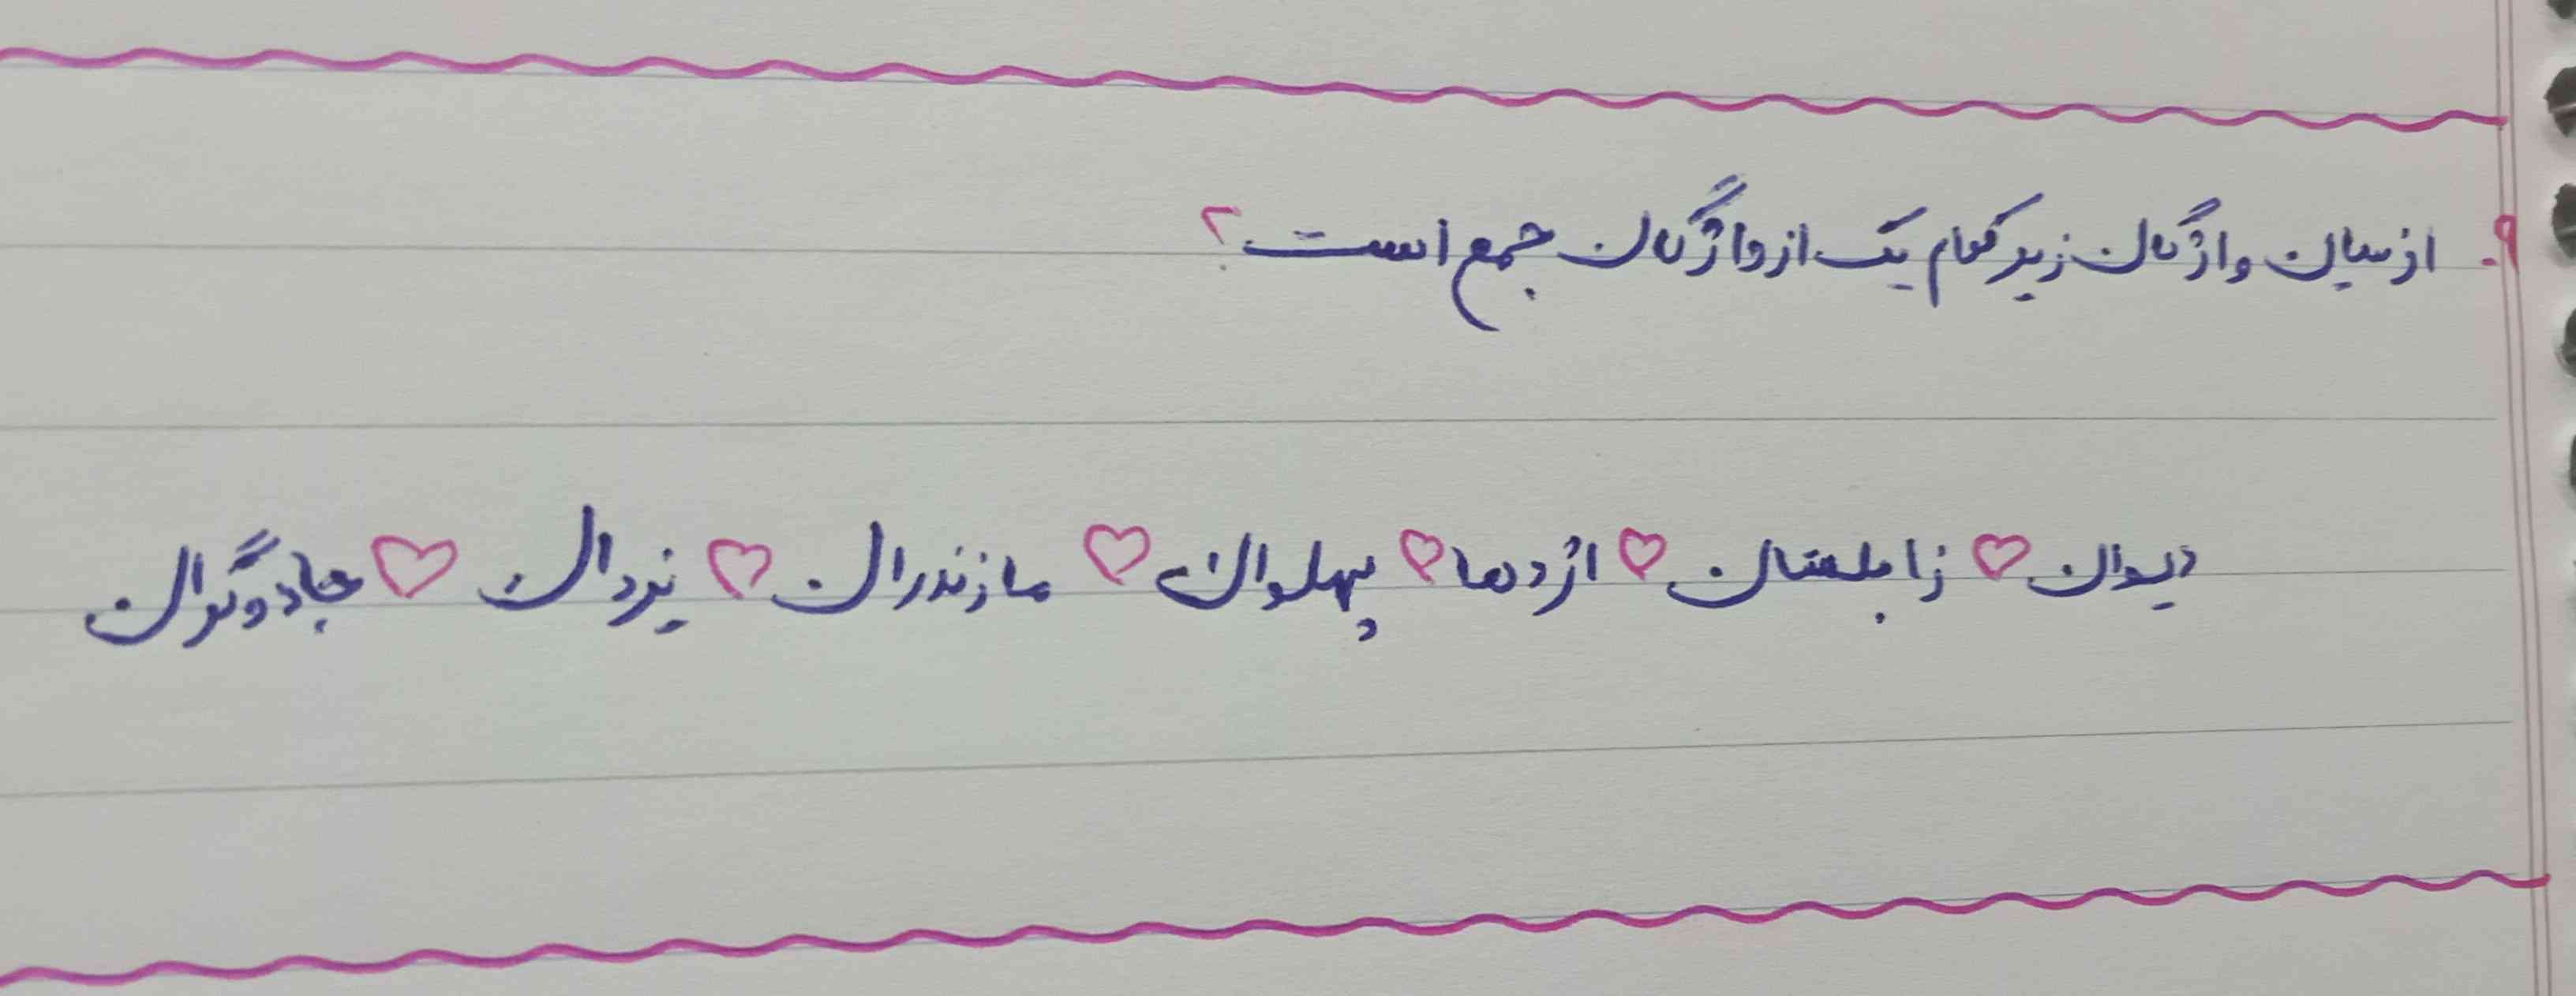 ۹. از میان واژگان زیر کدام یک از واژگان جمع است؟
دیوان ♡ زابلستان ♡ اژدها ♡ پهلوان ♡ مازندران ♡ یزدان ♡ جادوگران